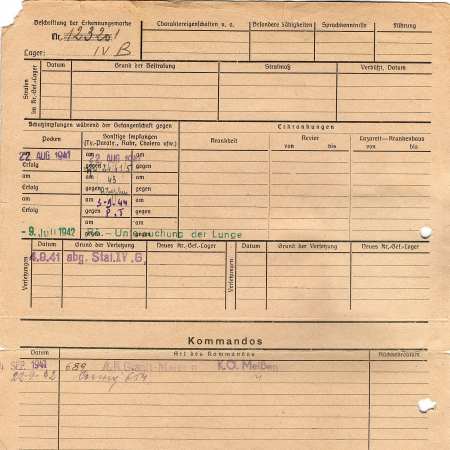 Beschriftung der Erkennungsmarke
Nr. 12320
Lager: IV B
Charaktereigenschaften u. a.
Besondere Fähigkeiten
Sprachkenntnisse
Führung
Strafen im Kr.-Gef.-Lager
Datum
Grund der Bestrafung
Strafmaß
Verbüßt, Datum
Schutzimpfungen während der Gefangenschaft gegen
Erkrankungen
Pocken
Sonstige Impfungen
(Ty.-Paraty., Ruhr, Cholera usw.)
Krankheit
Revier
von bis
Lazarett-Krankenhaus
von bis
22 AUG 1941
am 22 AUG 1941 am
Erfolg
gegen gegen
am
am 43 am
Erfolg
gegen gegen
am
am 3-9-44 am
Erfolg
gegen P.T gegen
- 9. Juli 1942
am am
gegen gegen
- Untersuchung der Lunge
Versetzungen
Datum
Grund der Versetzung
Neues Kr.-Gef.-Lager
Versetzungen
Datum
Grund der Versetzung
Neues Kr.-Gef.-Lager
4.9.41 abg. Stal. IV, G,
Kommandos
Datum
Art des Kommandos
Rückkehrdatum
SEP. 1941 689 A.K. K.O. Meißen
22-9-42